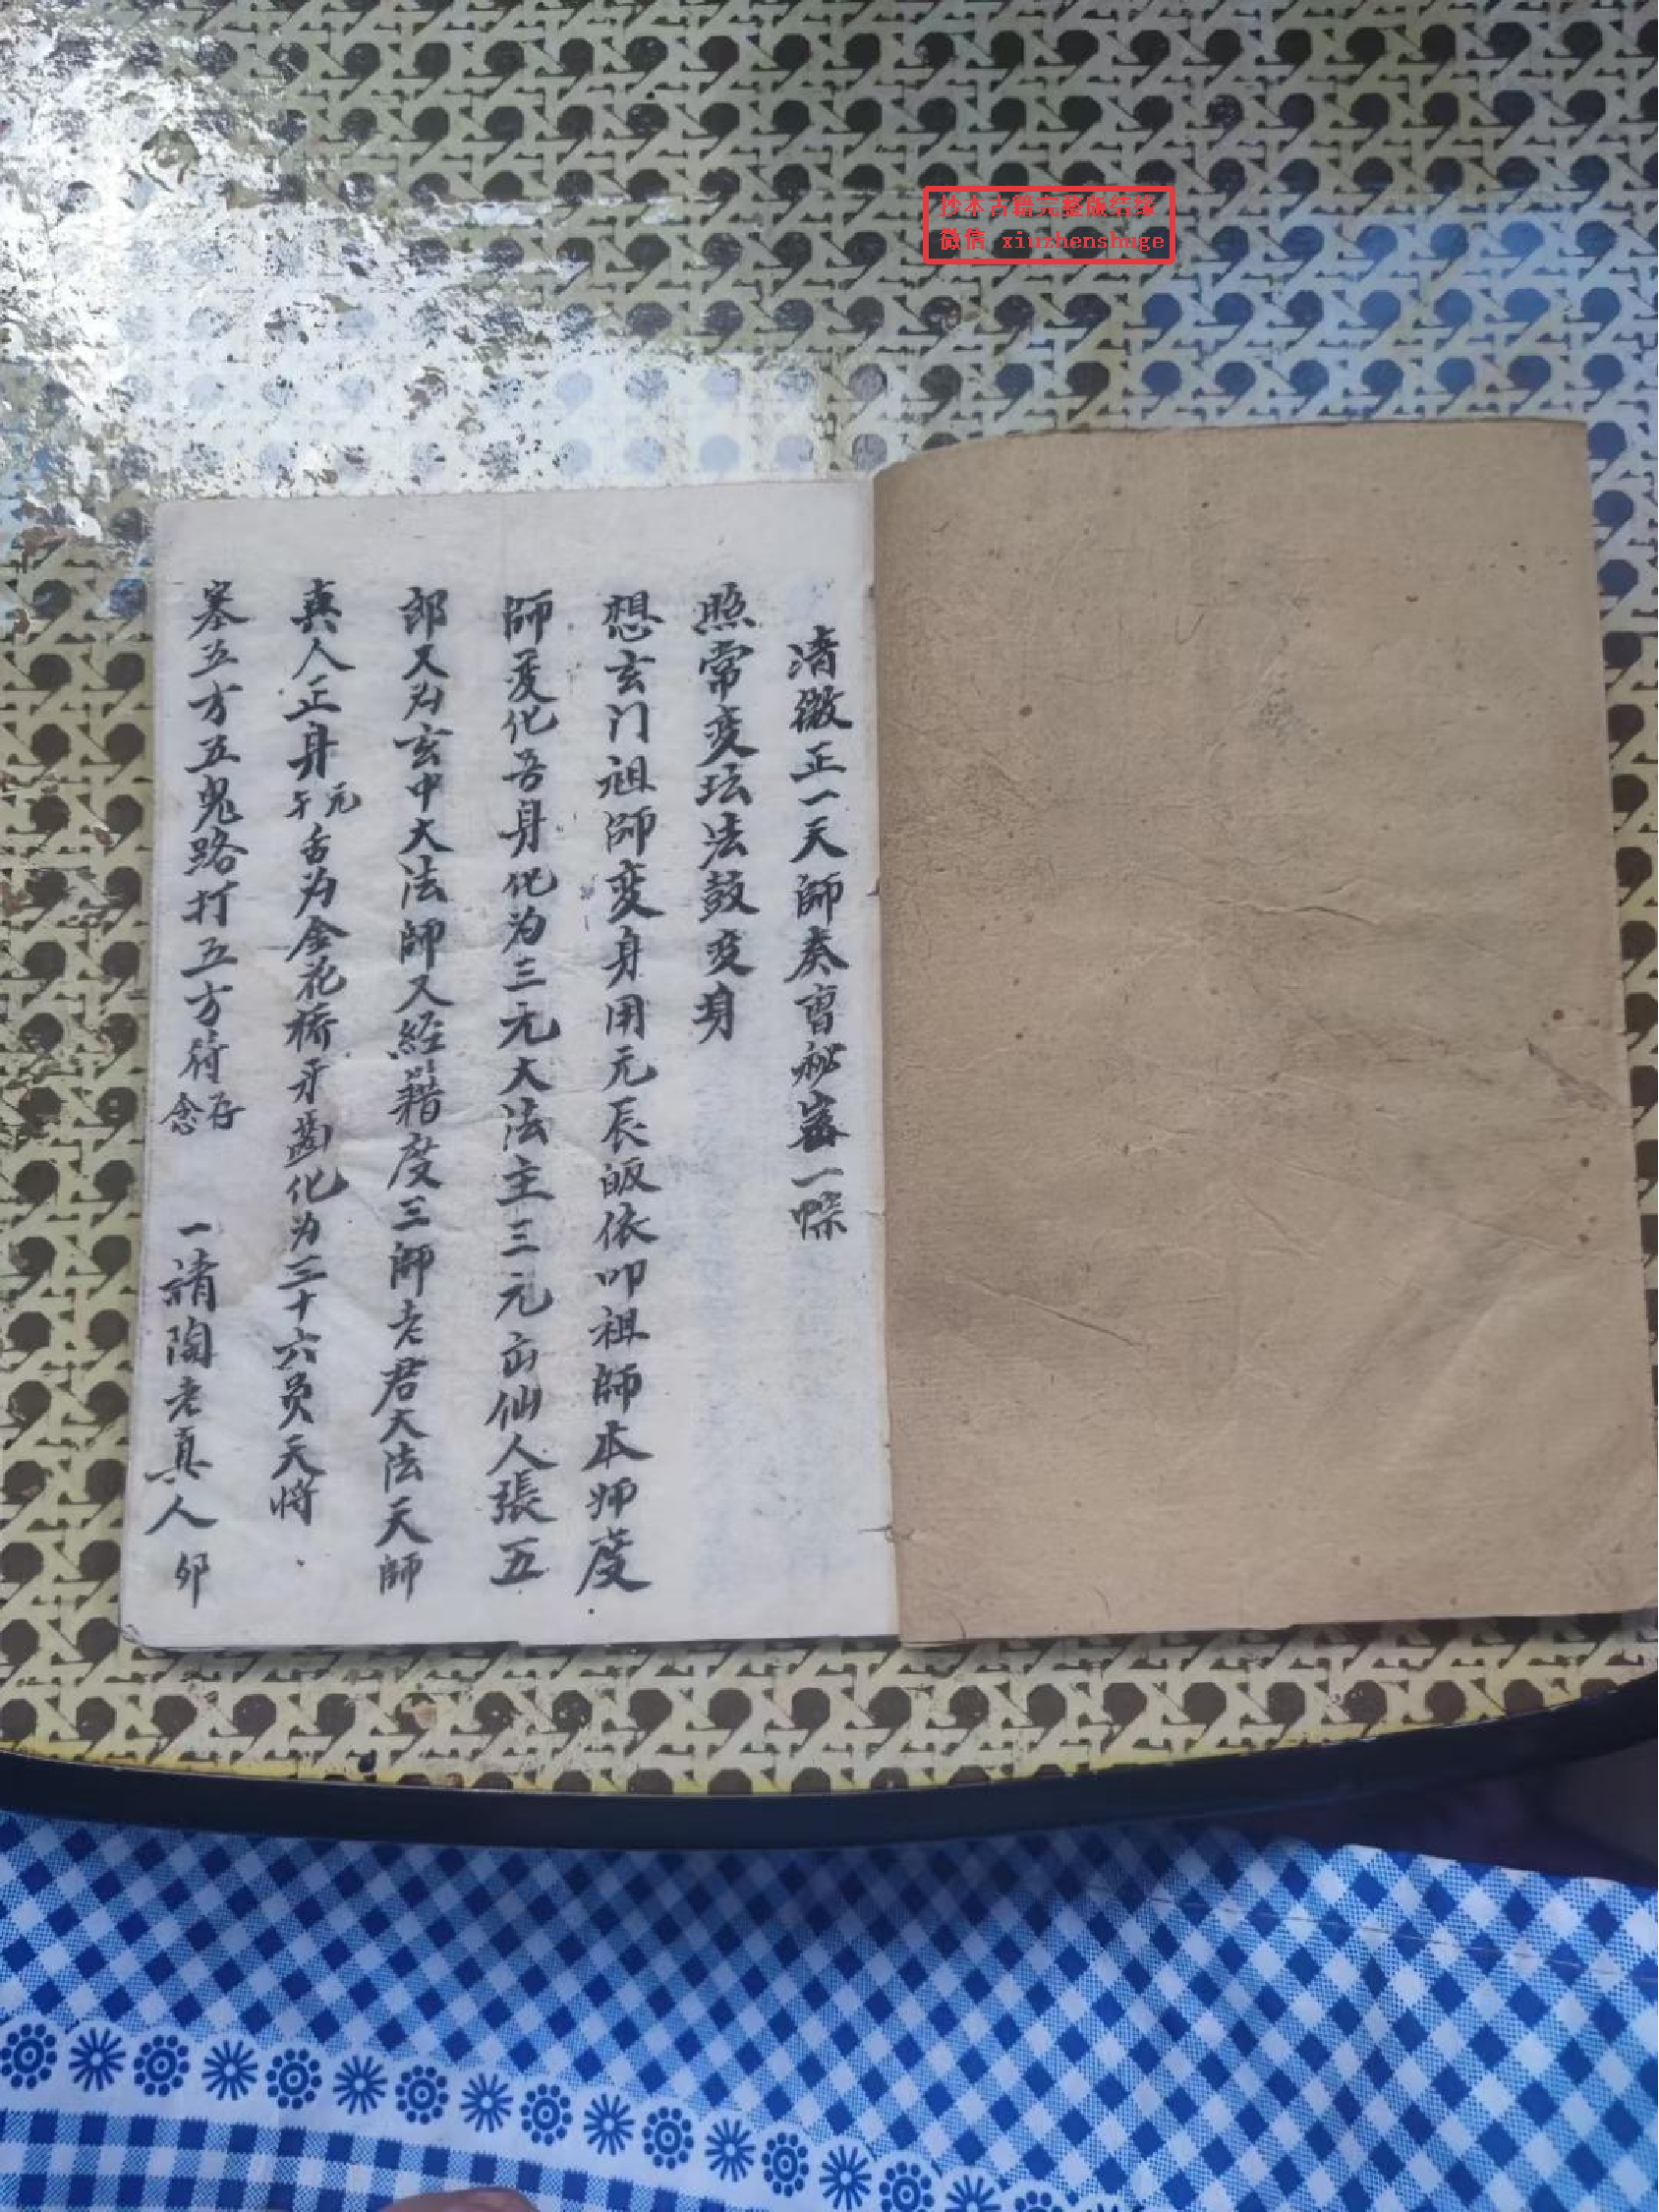 抄本古籍完整版结缘
微信 xiuzhenshuge
清微正一天師奏曹秘一
照常变坛法鼓变身
想玄门祖師変身用元辰皈依叩祖師本师度
師变化吾身化为三元大法主三元仙人張五
郎又为玄中大法師又経籍度三師老君大法天師
真人正身元午舌为金花橋牙齒化为三十六员天将
塞五方五鬼路打五方符存念 一請陶老真人